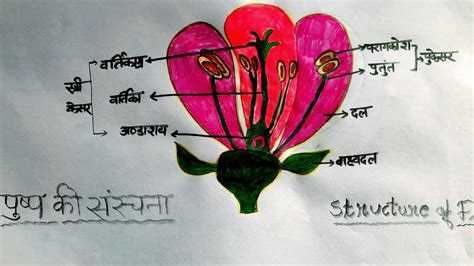 वर्तिकाग्र
स्त्री
केसर
वर्तिका
अण्डाशय
परागकोश
पुंकेसर
दल
बाह्यदल
पुष्प की संरचना
Structure of